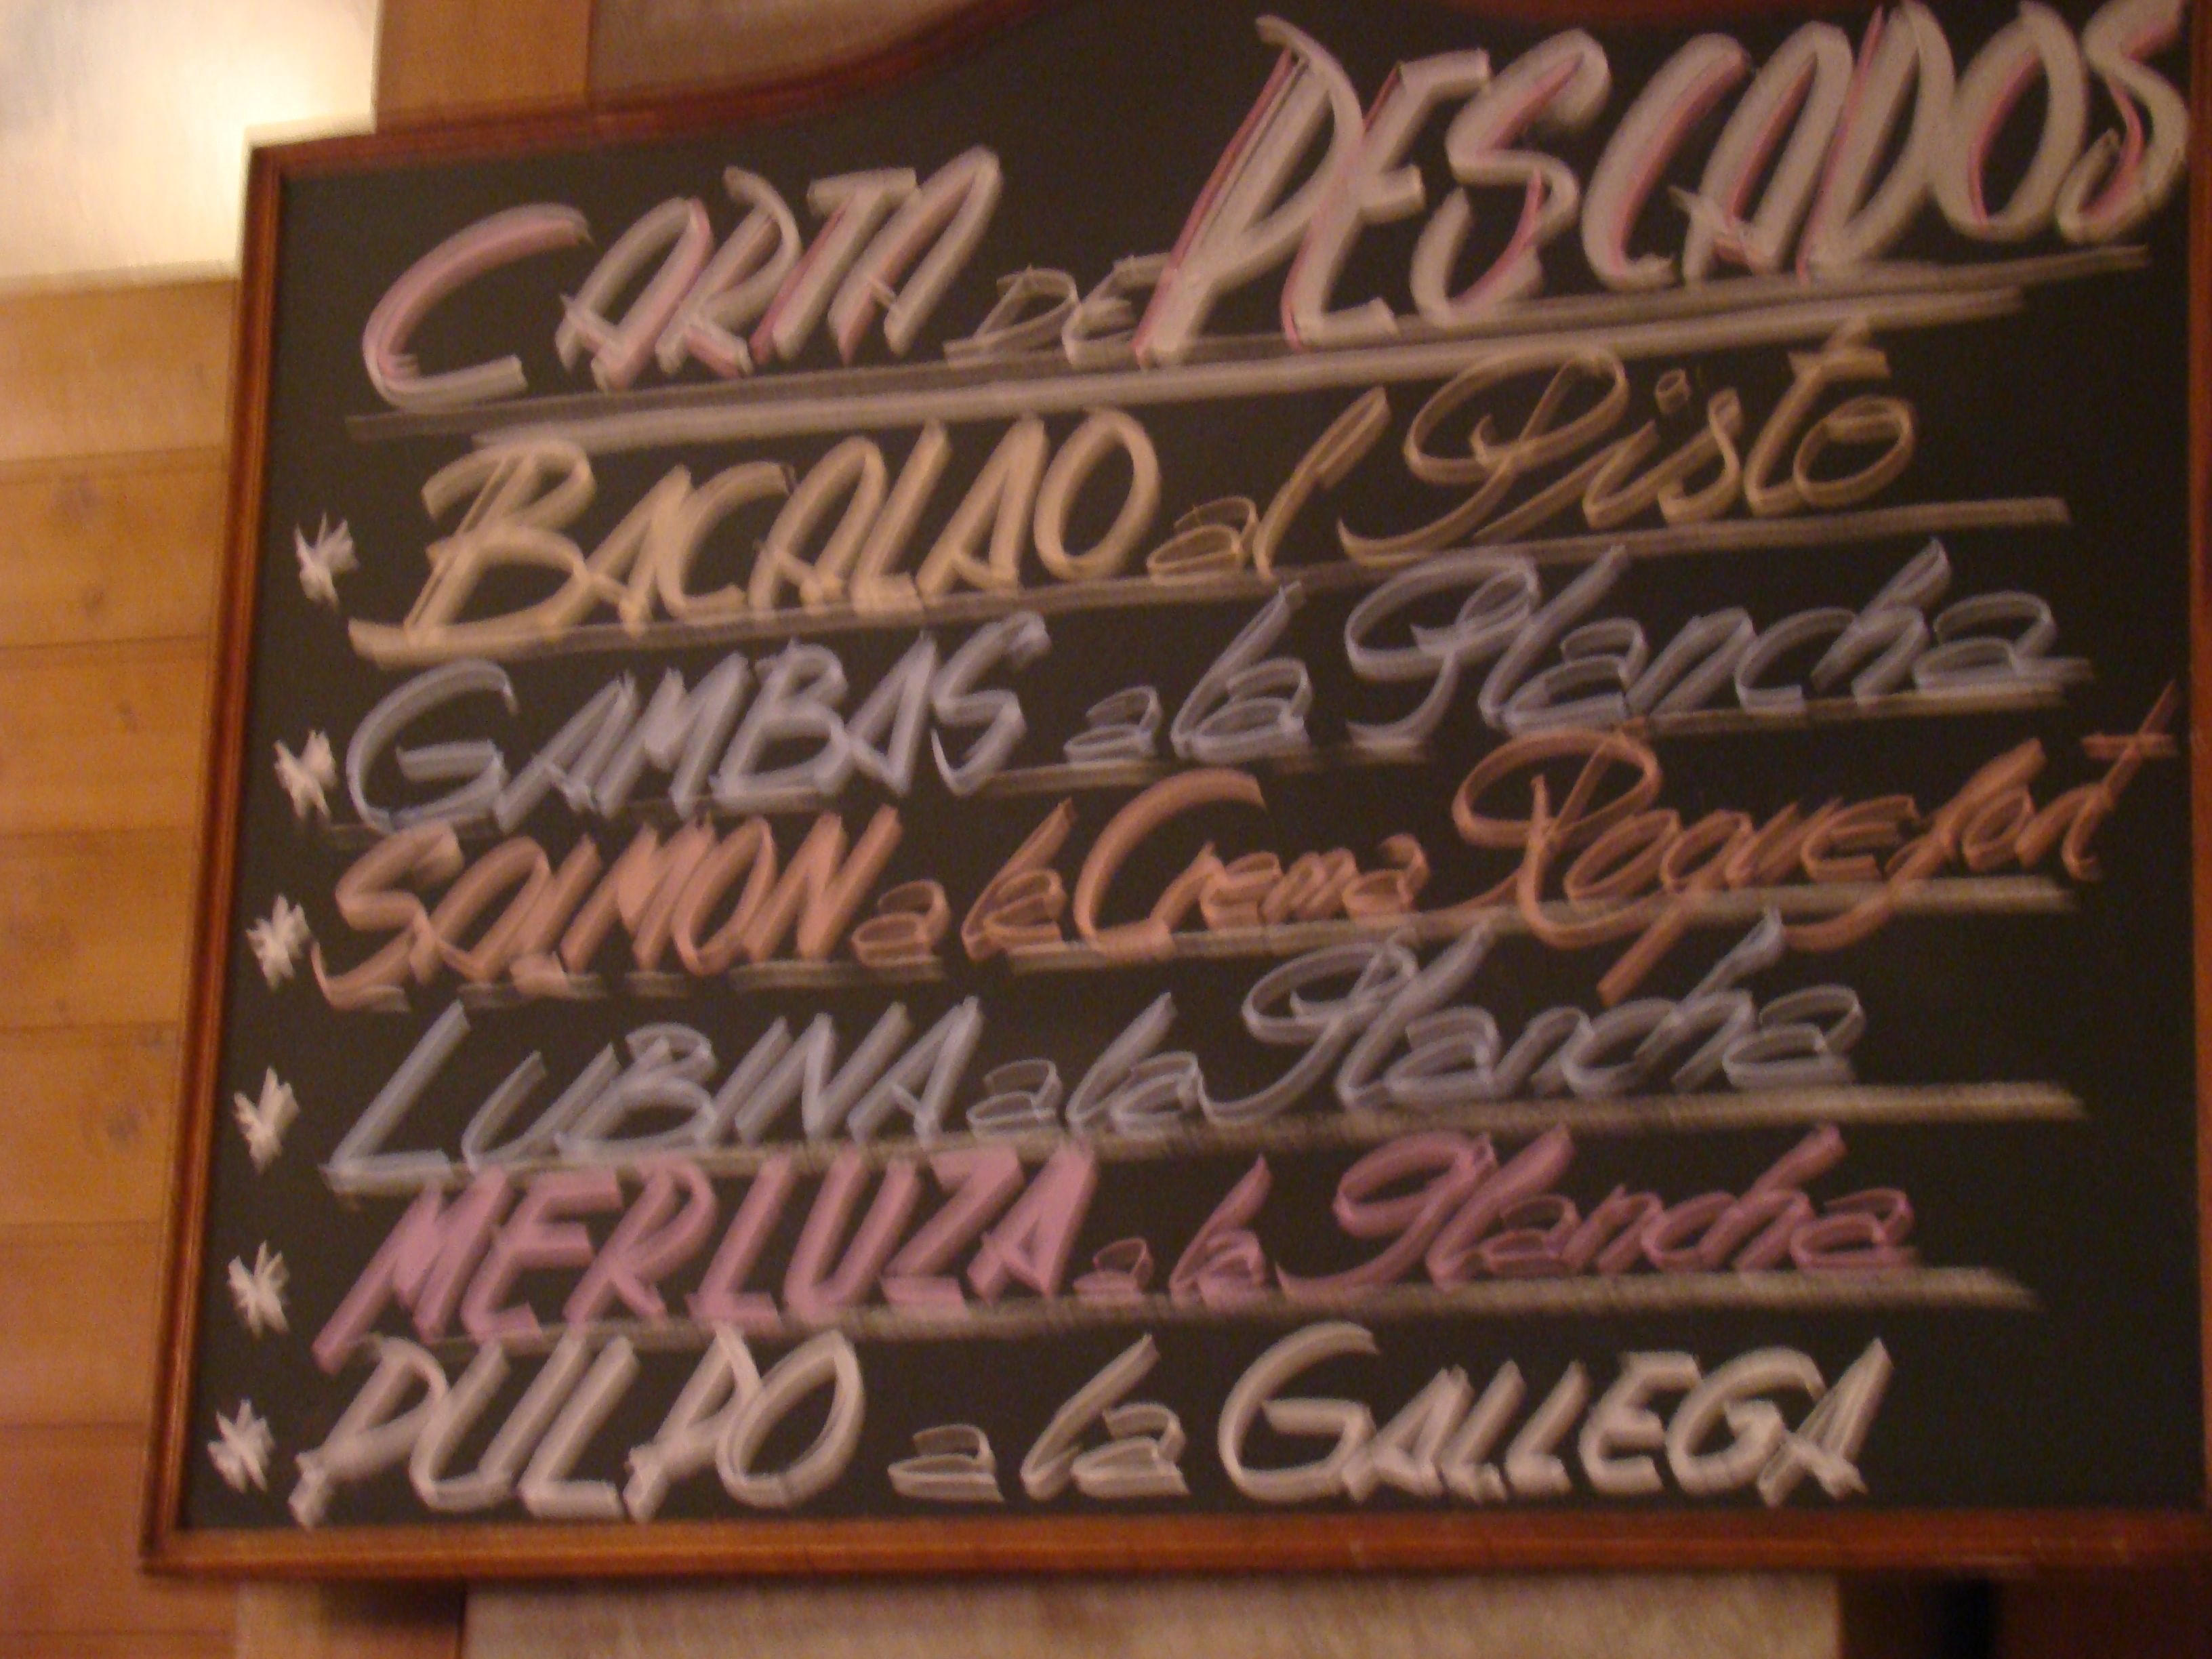 CARTA DE PESCADOS
* BACALAO al Pisto
* GAMBAS a la Plancha
* SALMON a la Crema Roquefort
* LUBINA a la Plancha
* MERLUZA a la Plancha
* PULPO a la GALLEGA